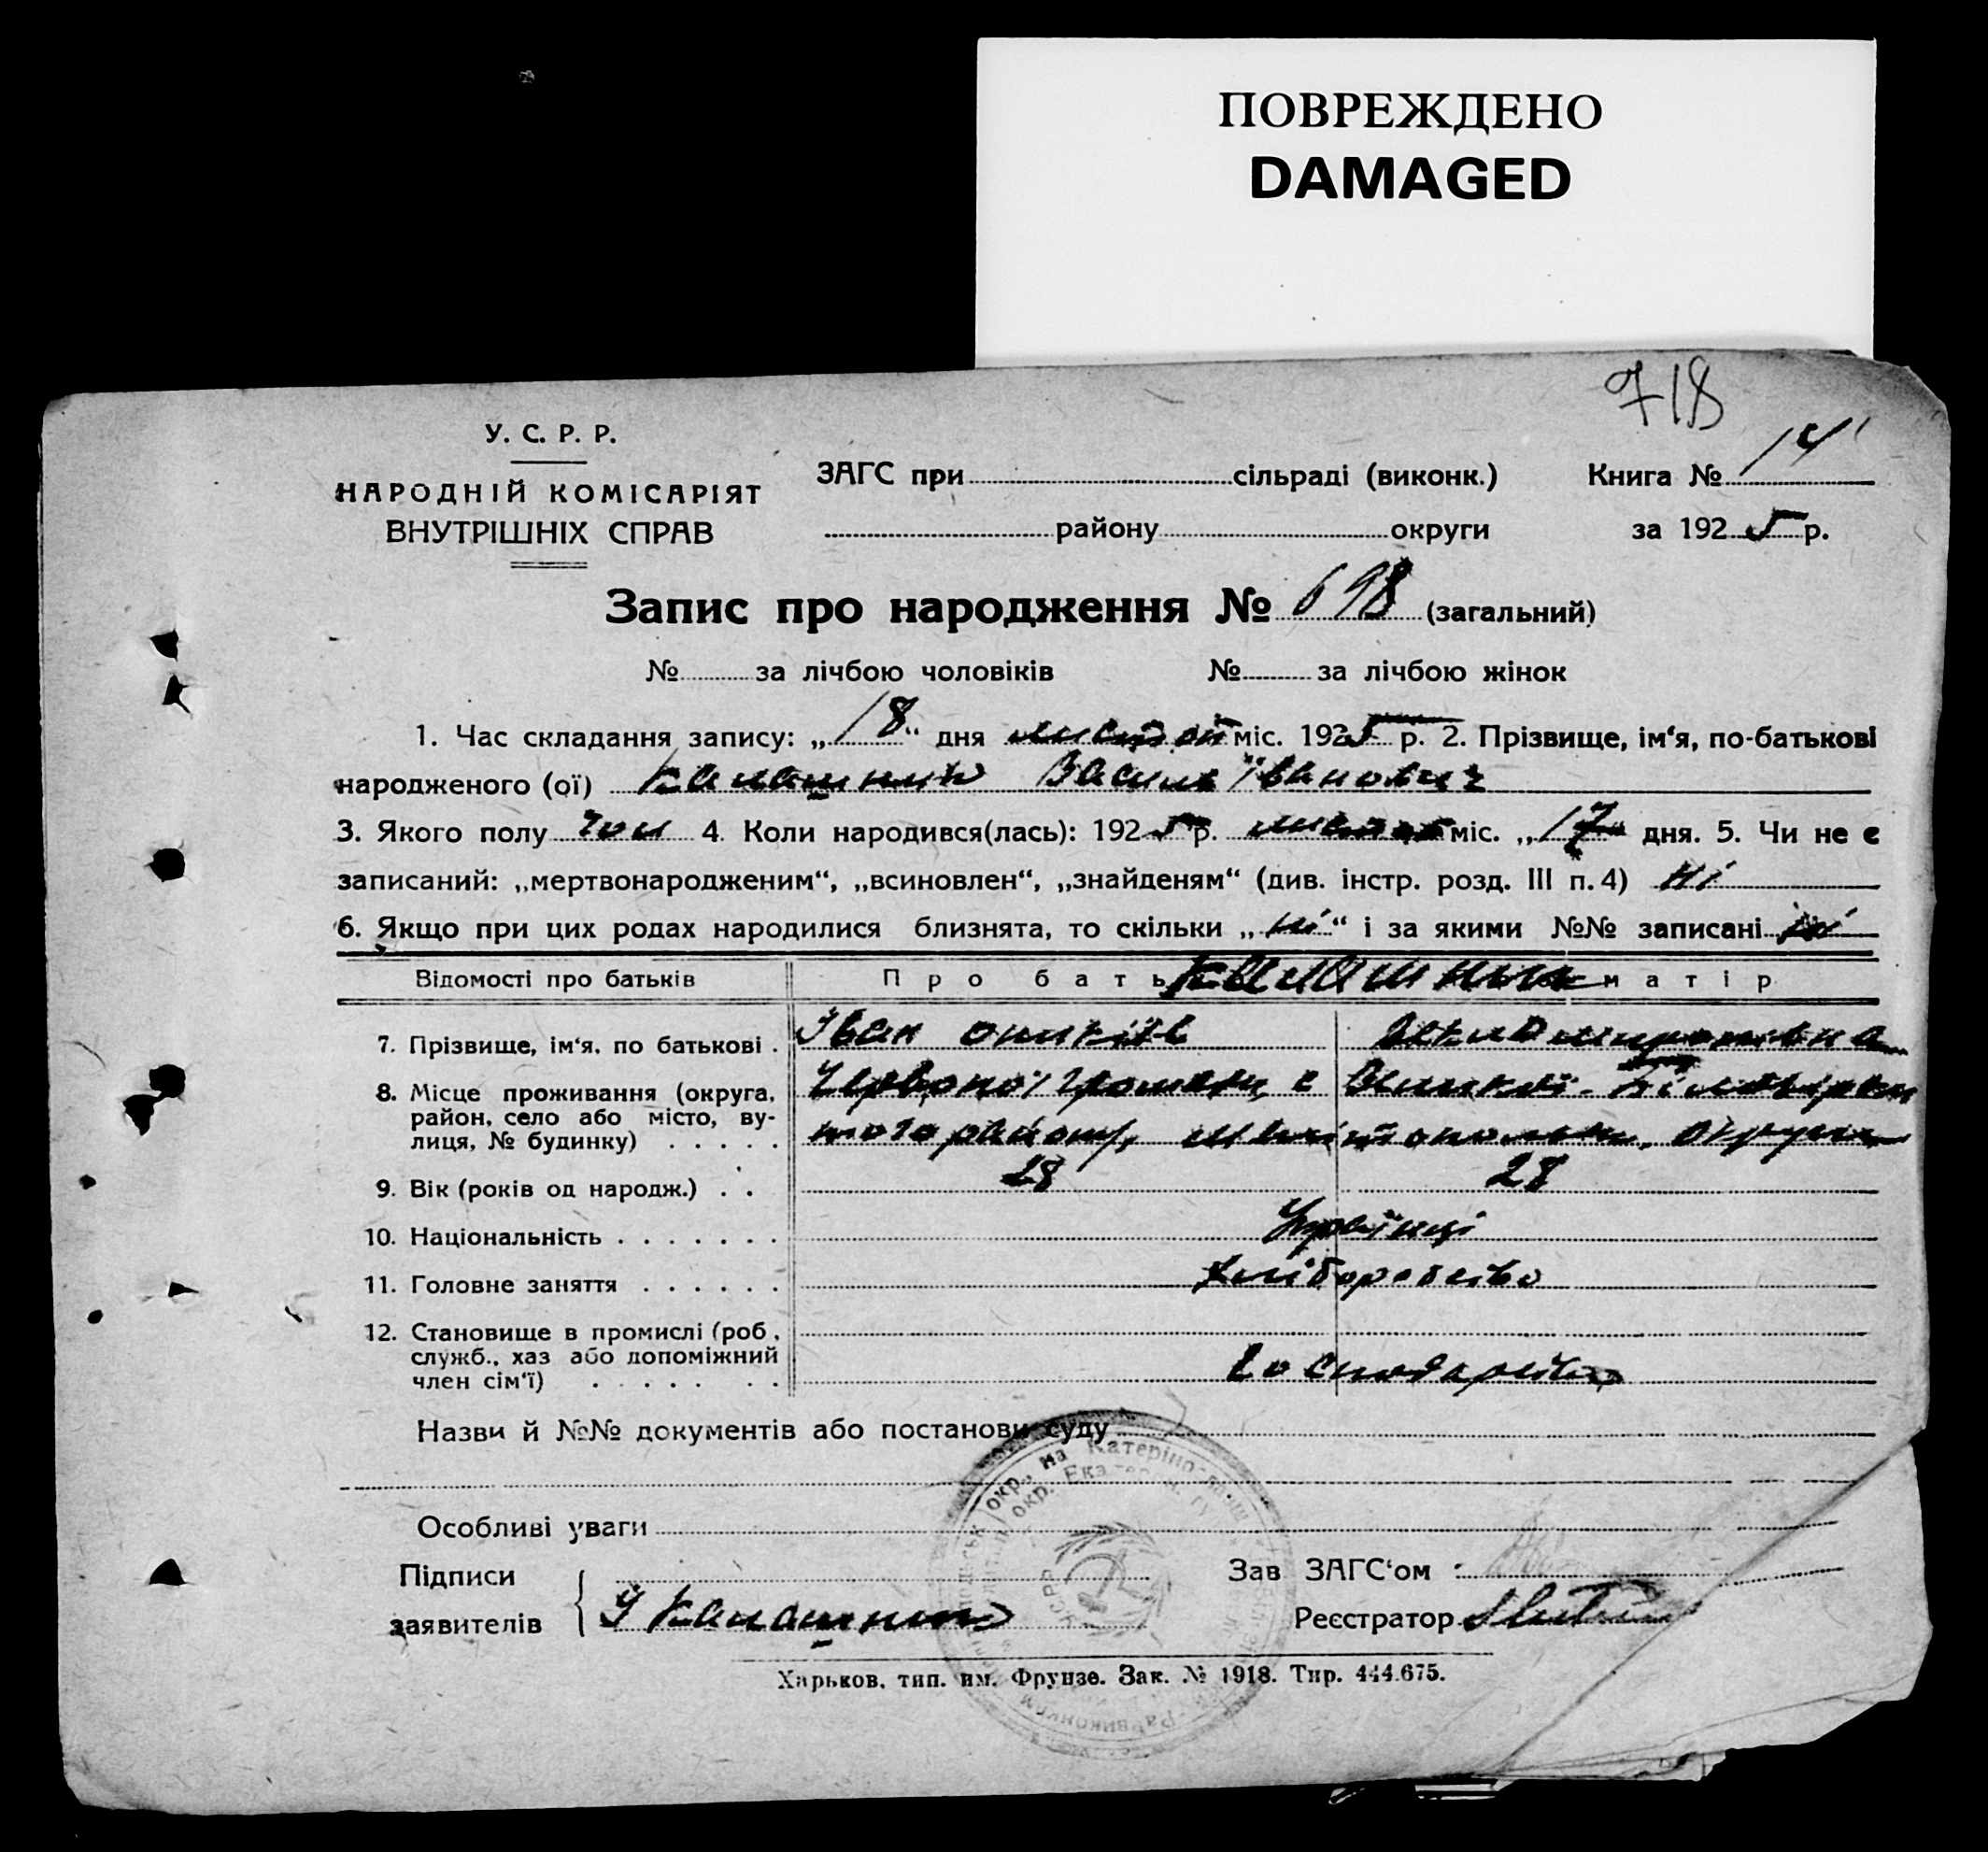 ПОВРЕЖДЕНО
DAMAGED
718
У. С. Р. Р.
НАРОДНІЙ КОМІСАРІЯТ
ВНУТРІШНІХ СПРАВ
ЗАГС при сільраді (виконк.) Книга № 14
району округи за 1925 р.
Запис про народження № 698 (загальний)
№ за лічбою чоловіків № за лічбою жінок
1. Час складання запису: „18“ дня міс. 1925 р. 2. Прізвище, ім‘я, по-батькові
народженого (ої) Калашник Василь Іванович
3. Якого полу чол 4. Коли народився(лась): 1925 р. міс. „17“ дня. 5. Чи не є
записаний: „мертвонародженим“, „всиновлен“, „знайденям“ (див. інстр. розд. III п. 4) Ні
6. Якщо при цих родах народилися близнята, то скільки „ні“ і за якими №№ записані ні
Відомості про батьків Про бать Калашник матір
7. Прізвище, ім‘я, по батькові . Іван
8. Місце проживання (округа, Червоної громади, с Великої-Білозірки
район, село або місто, ву- того району, округи
лиця, № будинку) . . . . .
9. Вік (років од народж.) . . 28 28
10. Національність . . . . . . . Українці
11. Головне заняття . . . . . . Хліборобство
12. Становище в промислі (роб.,
служб., хаз або допоміжний
член сім‘ї) . . . . . . .
Назви й №№ документів або постанови суду
Особливі уваги
Підписи
заявителів І Калашник
Зав ЗАГС‘ом :
Реєстратор
Харьков, тип. им. Фрунзе. Зак. № 1918. Тир. 444.675.